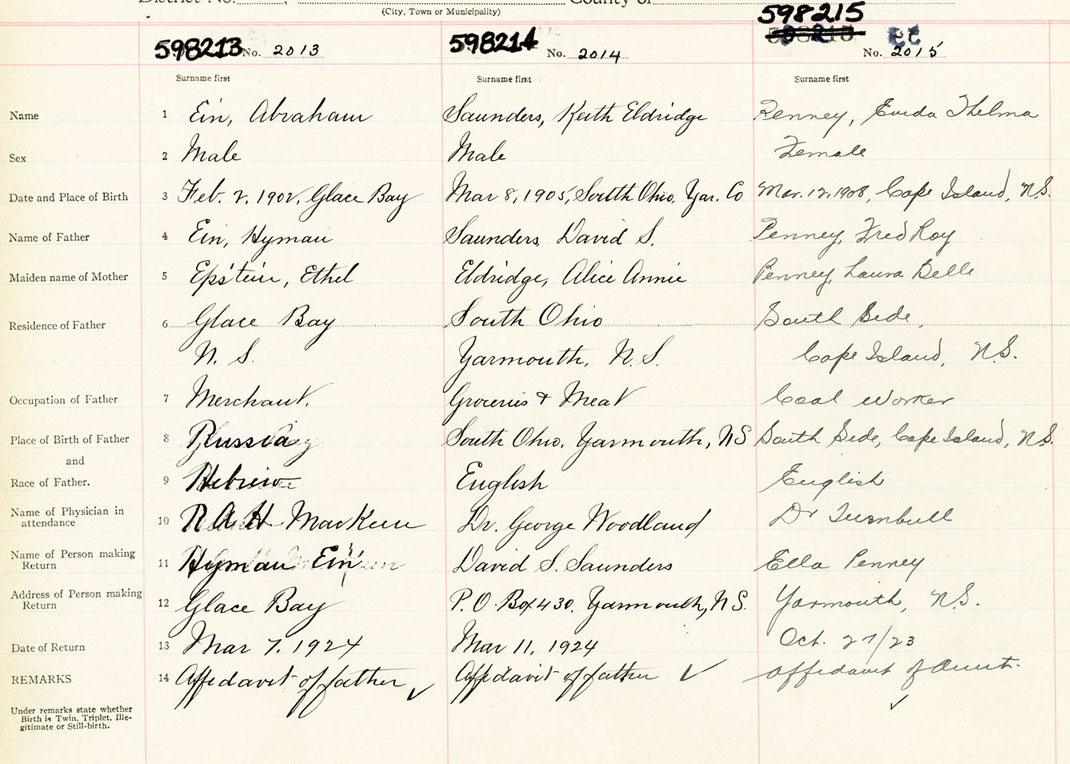 District No. , County of
(City, Town or Municipality)
598213 No. 2013 598214 No. 2014 598215 No. 2015
Surname first Surname first Surname first
Name 1 Ein, Abraham Saunders, Keith Eldridge Penney, Evida Thelma
Sex 2 Male Male Female
Date and Place of Birth 3 Feb. 2, 1902, Glace Bay Mar 8, 1905, South Ohio, Yar. Co Mar. 12, 1908, Cape Island, N.S.
Name of Father 4 Ein, Hyman Saunders, David S. Penney, Fred Roy
Maiden name of Mother 5 Epstein, Ethel Eldridge, Alice Annie Penney, Laura Belle
Residence of Father 6 Glace Bay South Ohio South Side,
N. S. Yarmouth, N. S. Cape Island, N.S.
Occupation of Father 7 Merchant. Groceries & Meat Coal Worker
Place of Birth of Father 8 Russia South Ohio, Yarmouth, NS South Side, Cape Island, N.S.
and
Race of Father. 9 Hebrew English English
Name of Physician in
attendance 10 R A H MacKeen Dr. George Woodland Dr Turnbull
Name of Person making
Return 11 Hyman Ein David S. Saunders Ella Penney
Address of Person making
Return 12 Glace Bay P.O. Box 430, Yarmouth, N.S. Yarmouth, N.S.
Date of Return 13 Mar 7. 1924 Mar 11, 1924 Oct. 27/23
REMARKS 14 Affidavit of father ✓ Affidavit of father ✓ Affidavit of Aunt. ✓
Under remarks state whether
Birth is Twin, Triplet, Ille-
gitimate or Still-birth.